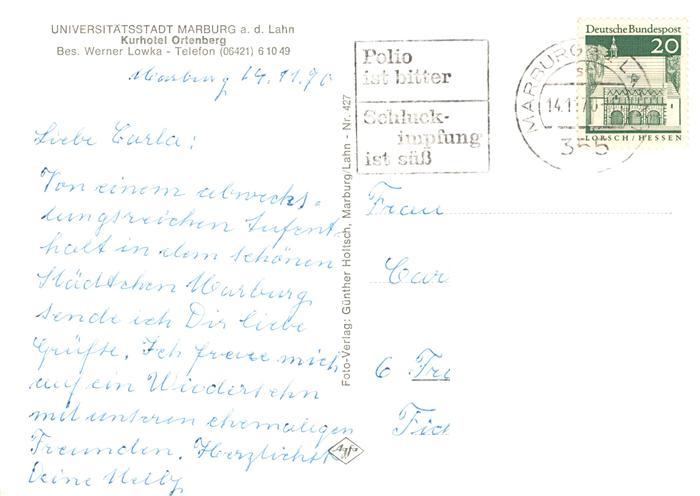 UNIVERSITÄTSSTADT MARBURG a. d. Lahn
Kurhotel Ortenberg
Bes. Werner Lowka - Telefon (06421) 6 10 49
Marburg 14.11.70
Liebe Carla:
Von einem abwechs-
lungsreichen Aufent-
halt in dem schönen
Städtchen Marburg
sende ich Dir liebe
Grüße. Ich freue mich
auf ein Wiedersehn
mit unseren ehemaligen
Freunden. Herzlichst
Deine Melly
Foto-Verlag: Günther Holtsch, Marburg/Lahn - Nr. 427
Agfa
Polio
ist bitter
Schluck-
impfung
ist süß
MARBURG
14.1
70
355
Deutsche Bundespost
20
LORSCH/HESSEN
Frau
Car
6 Fr